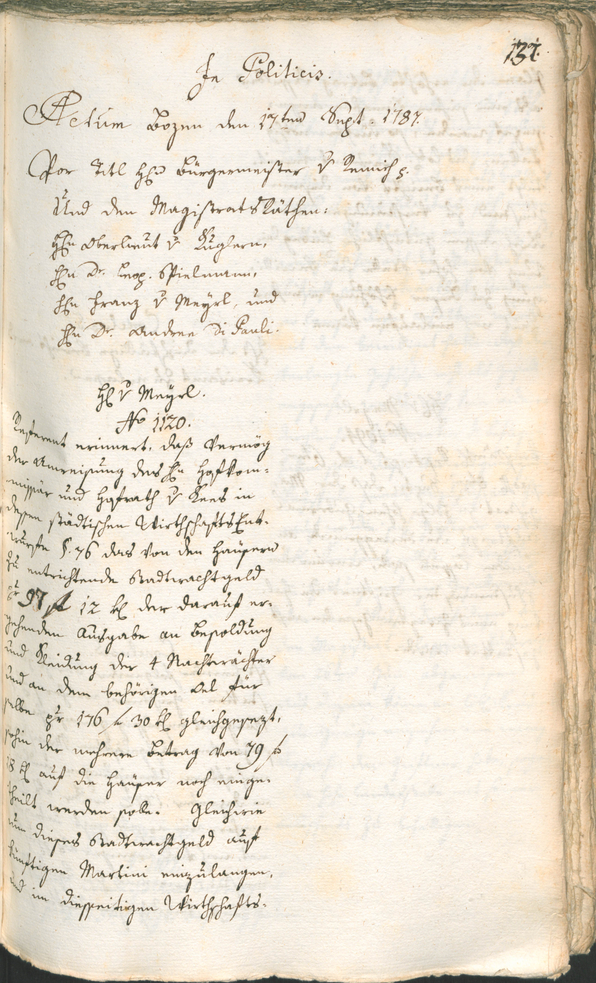 137.
In Politicis.
Actum Bozen den 17ten Sept. 1787.
Vor Titl Hrn Bürgermeister v Remich p.
Und den MagistratsRäthen:
Hrn Oberlieut v Kuglern,
Hrn Dr. Leop. Spielmann,
Hrn Franz v Meyrl, und
Hrn Dr. Andree Di Pauli.
Hr v Meyrl.
No 1120.
Referent erinnert, daß vermög
der Anweisung des Hrn Hofkom-
missär und Hofrath v Kees in
dessen städtischen WirthschaftsEnt-
wurfe §. 76 das von den Häusern
zu entrichtende Stadtwachtgeld
pr 97 f 12 kr der darauf er-
gehenden Ausgabe an Besoldung
und Kleidung der 4 Nachtwächter
und an dem behörigen Oel für
selbe pr 176 f 30 kr gleichgesezt,
sohin der mehrere Betrag von 79 f
18 kr auf die Häuser noch einge-
theilt werden solle. Gleichwie
nun dieses Stadtwachtgeld auf
künftigen Martini einzulangen,
und im diesseitigen Wirthschafts-